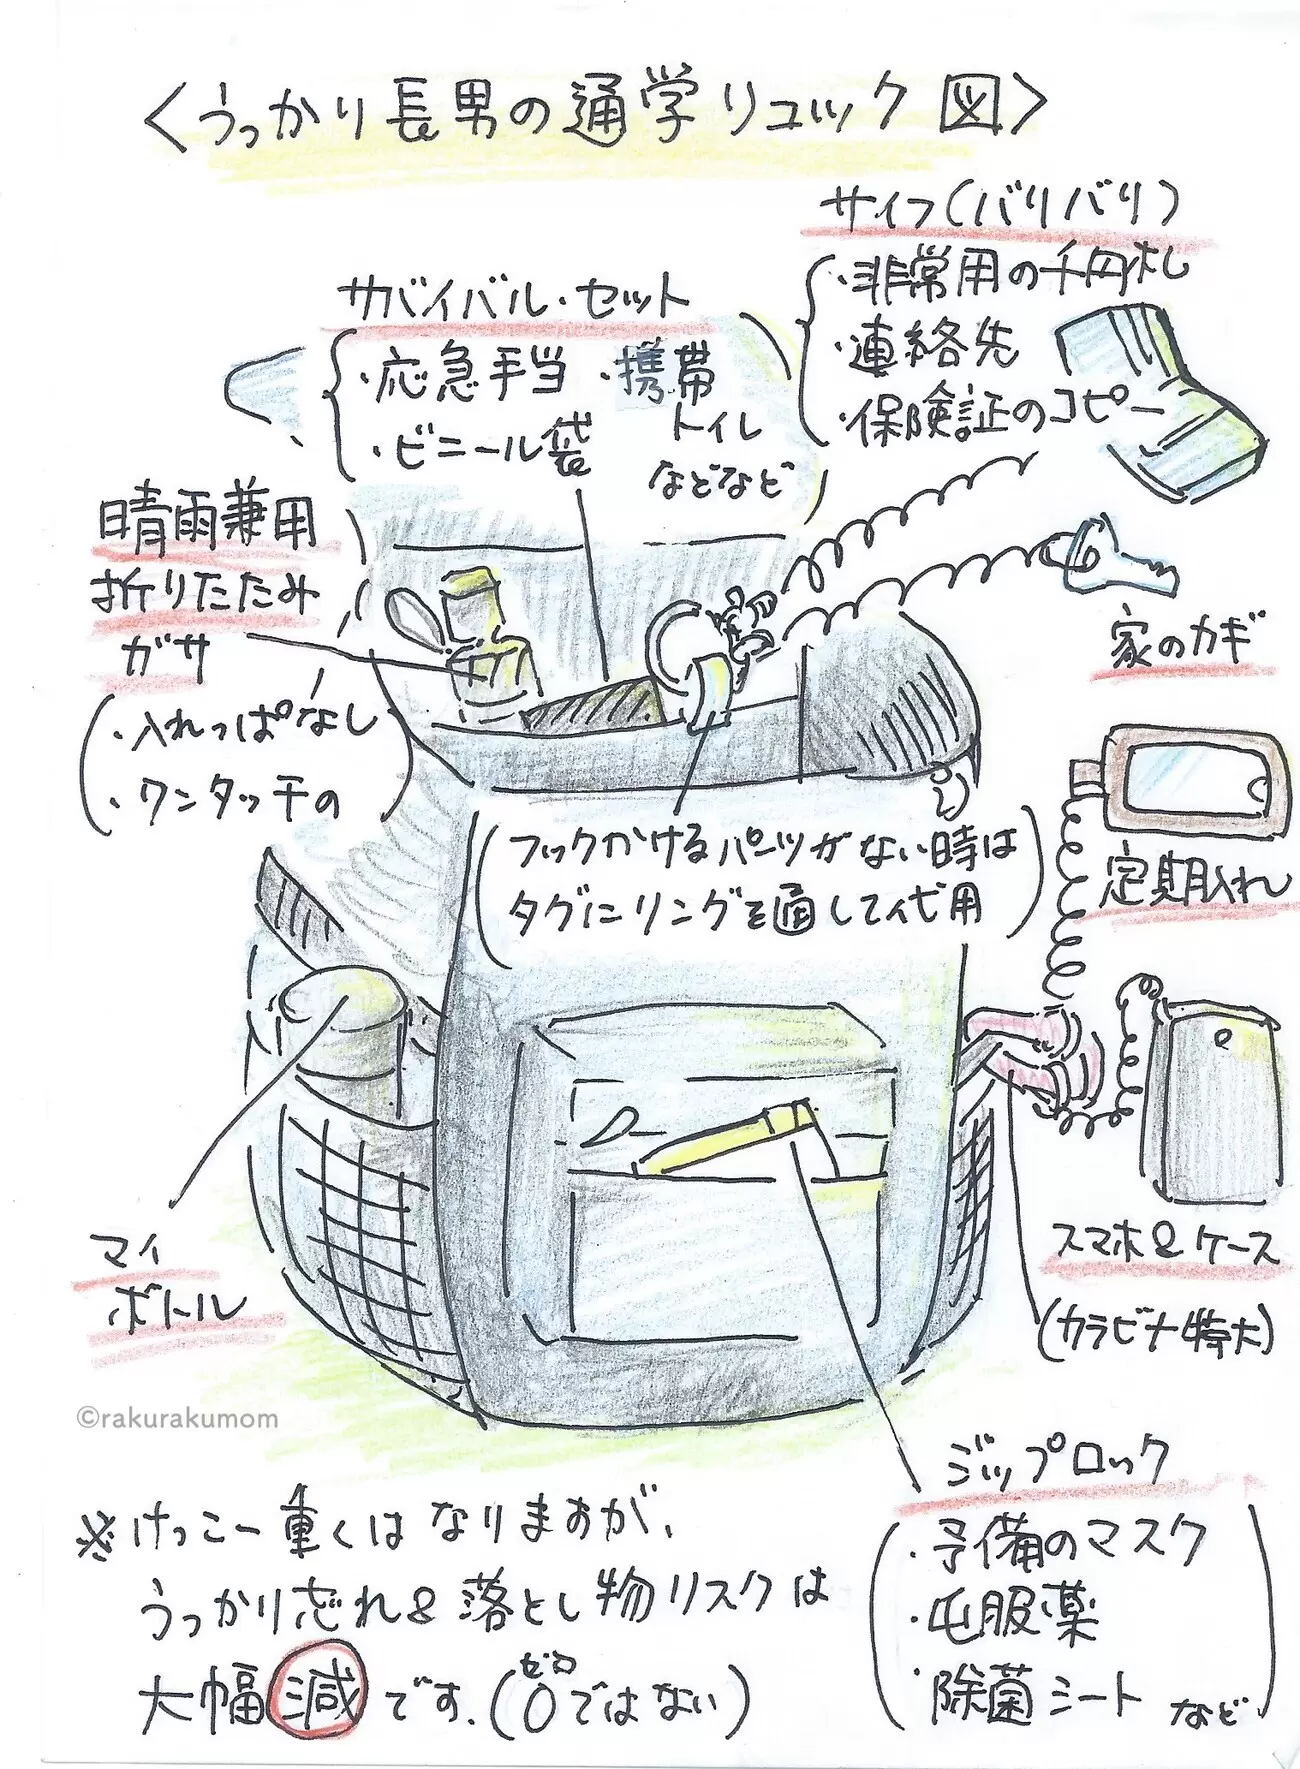 <うっかり長男の通学リュック図>
サイフ(バリバリ)
・非常用の千円札
・連絡先
・保険証のコピー
サバイバル・セット
・応急手当 ・携帯
トイレ
・ビニール袋
などなど
晴雨兼用
折りたたみ
ガサ
・入れっぱなし
・ワンタッチの
家のカギ
定期入れ
(フックかけるパーツがない時は
タグにリングを通して代用)
スマホ&ケース
(カラビナ特大)
マイ
ボトル
©rakurakumom
ジップロック
・予備のマスク
・屯服薬
・除菌シート など
※けっこー重くはなりますが、
うっかり忘れ&落とし物リスクは
ゼロ
大幅減です.(0ではない)